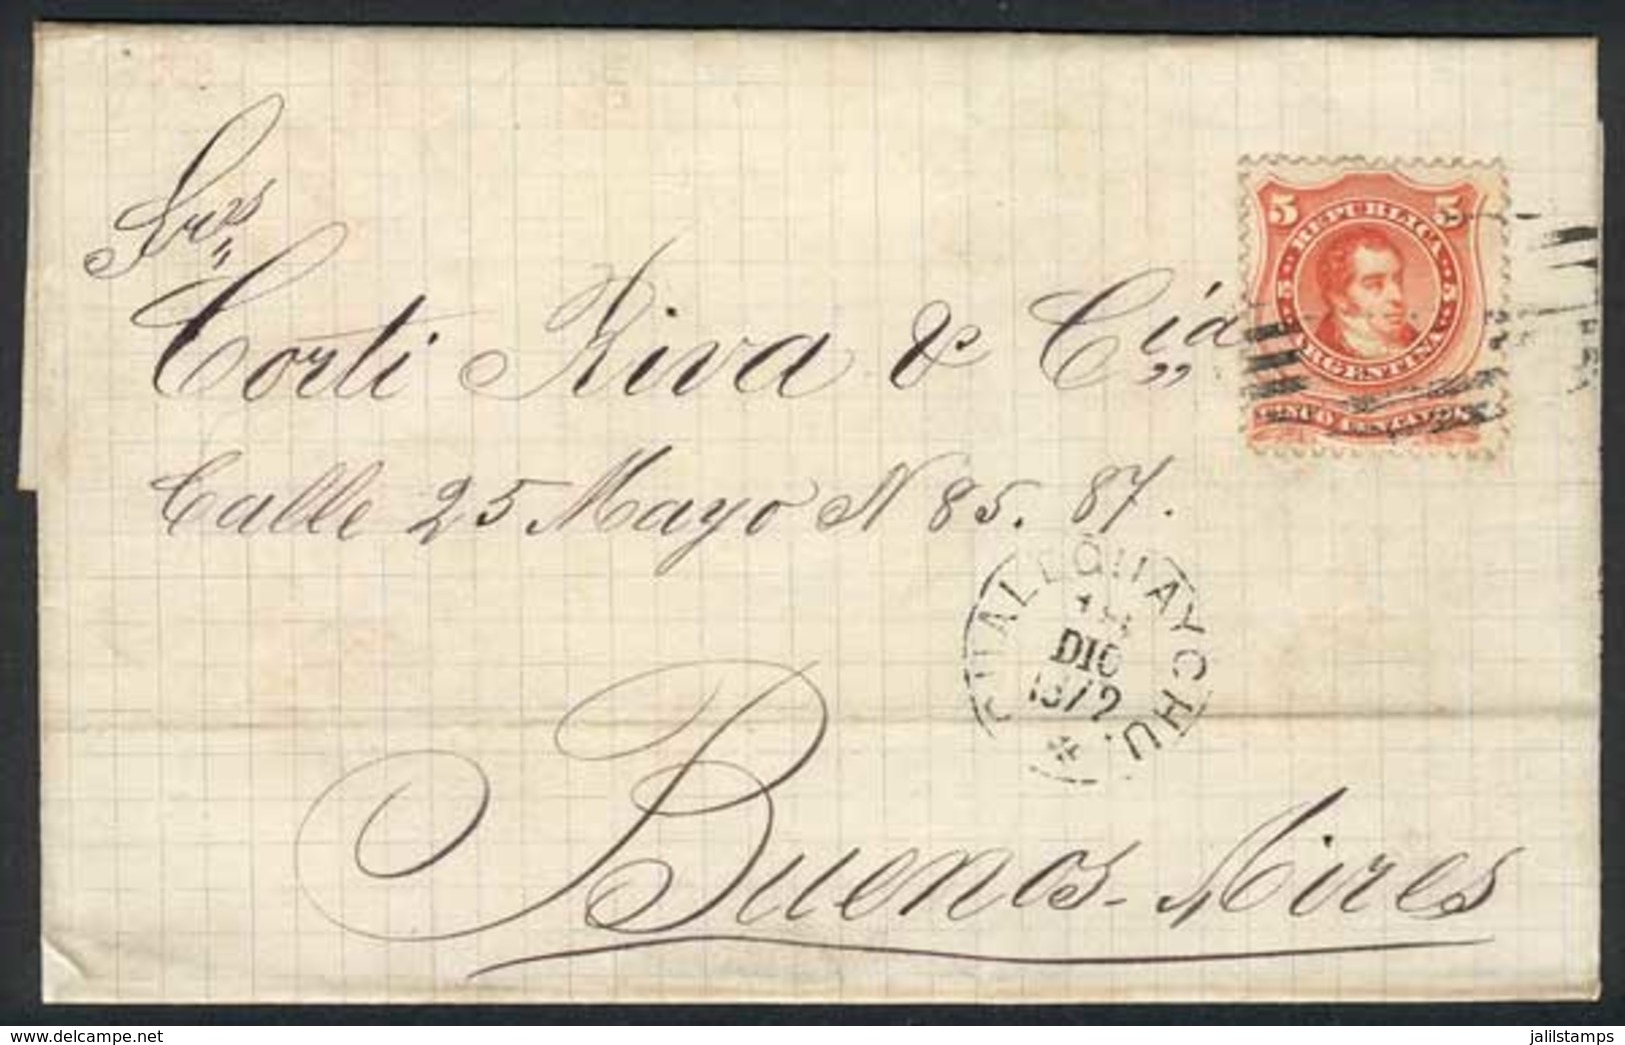 Srs
Corti Riva & Cía
Calle 25 Mayo N 85. 87.
Buenos-Aires
5 5
REPUBLICA
5 5
ARGENTINA
CINCO CENTAVOS
GUALEGUAYCHU.
DIC
1872
delcampe.net
jalilstamps